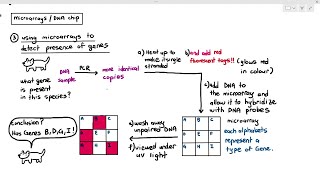 microarrays / DNA chip
③ using microarrays to
detect presence of genes
what gene
is present
in this species?
DNA
sample
PCR
more identical
copies
a) Heat up to
make it single
stranded
b) and add red
fluorescent tags!! (glows red
in colour)
c) add DNA to
the microarray and
allow it to hybridize
with DNA probes
microarray
A B C
D E F
G H I
each alphabets
represent a
type of Gene.
e) wash away
unpaired DNA
f) viewed under
uv light
A B C
D E F
G H I
Conclusion?
Has Genes B, D, G, I!